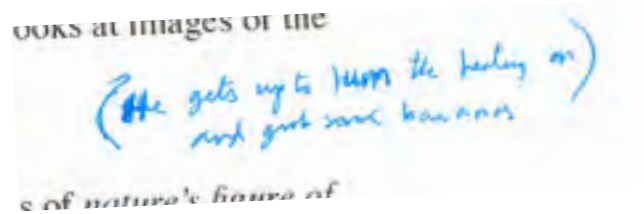 ooks at images of the
(He gets up to turn the heating on)
and get some bananas
s of nature's figure of